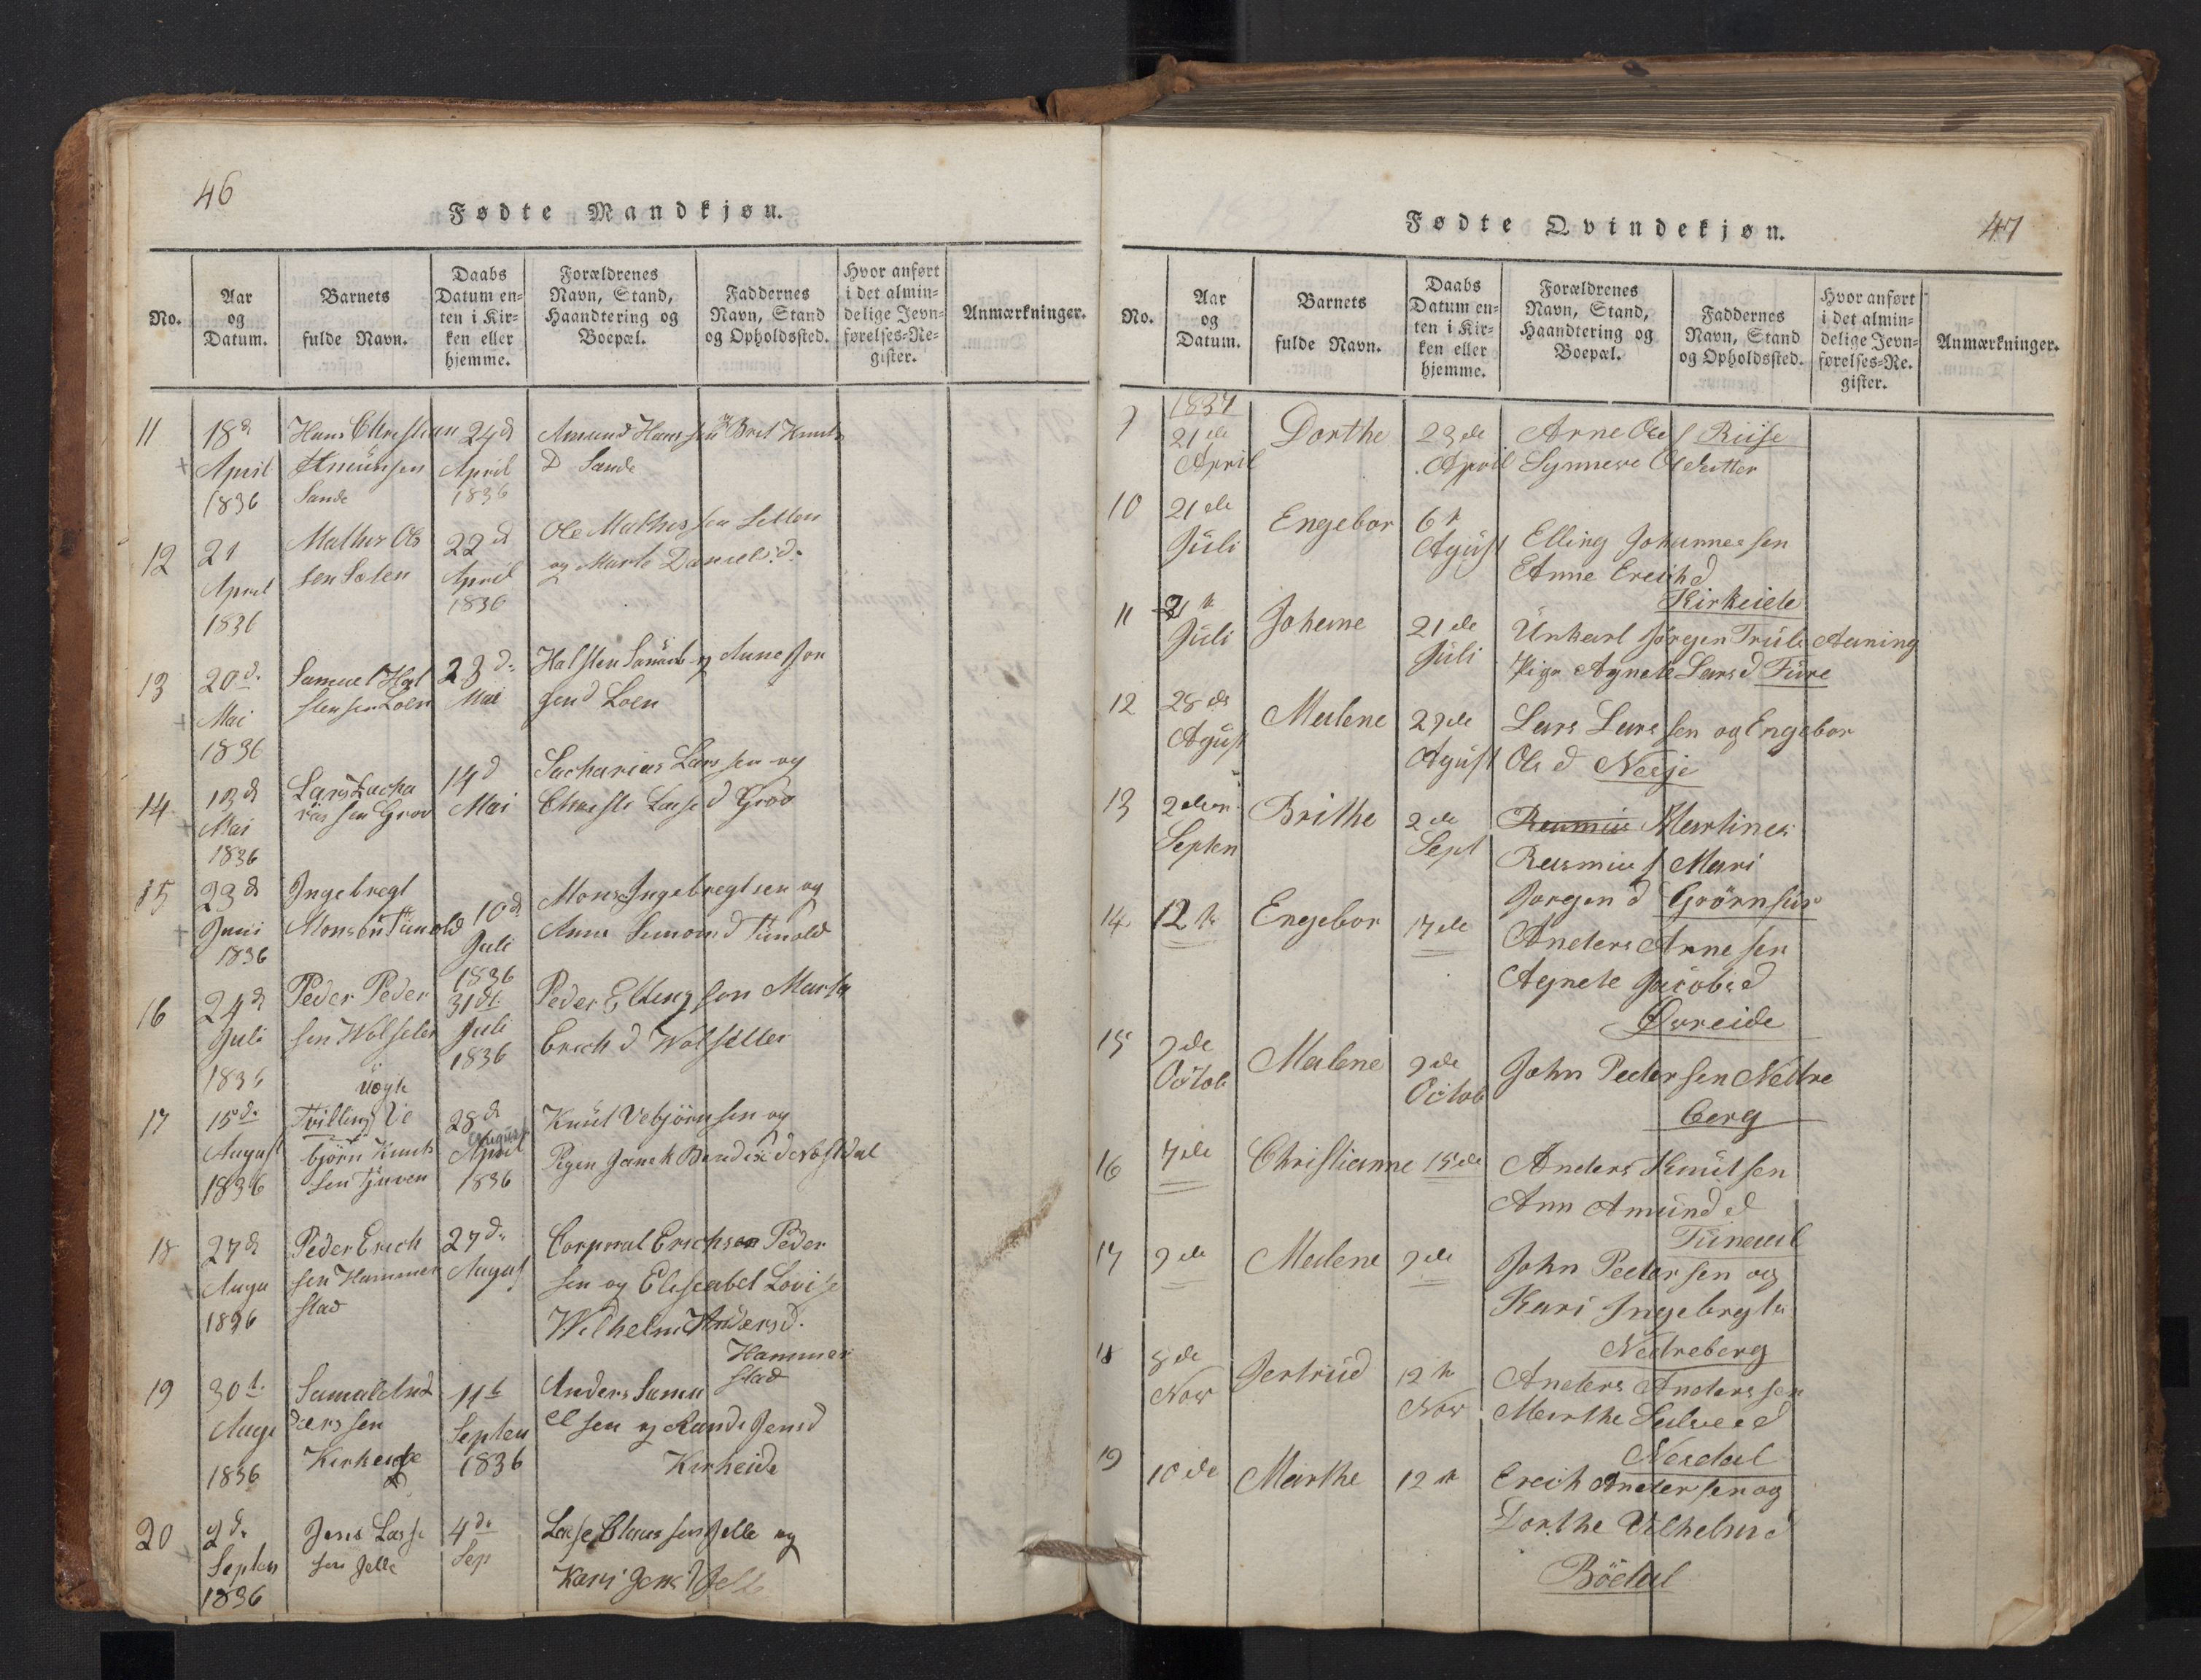 46
Fødte Mandkjøn.
No.
Aar
og
Datum.
Barnets
fulde Navn.
Daabs
Datum en=
ten i Kir=
ken eller
hjemme.
Forældrenes
Navn, Stand,
Haandtering og
Boepæl.
Faddernes
Navn, Stand
og Opholdssted.
Hvor anført
i det almin=
delige Jevn=
førelses=Re=
gister.
Anmærkninger.
11
18d
April
1836
Hans Christian
Sande
24d
April
1836
Amund Hans sen og Brit Knuts
D Sande
12
21
April
1836
Mathis Ols
sen
22d
April
1836
Ole Mathis sen
og Marte Daniels d.
13
20d.
Mai
1836
Samuel Hal
sten sen Loen
23d.
Mai
Halsten og Anne Jor
gen d Loen
14
13d
Mai
1836
Lars Zacha
rias sen Grov
14d
Mai
Sacharias Lars sen og
Lasse d Grov
15
23d
Juni
1836
Ingebregt
Mons sen Tunold
10d
Juli
1836
Mons Ingebregtsen og
Anne Simon d Tunold
16
24d
Juli
1836
Peder Peder
sen
31dt
Juli
1836
Peder Elling sen Marta
Erich d
17
15d.
August
1836
uægte
Tvilling Ve
björn Knuts
sen Tjuven
28d
August
April
1836
Knut Vebjörn sen og
Pigen
18
27d
Augu
1836
Peder Erich
sen Hammer
stad
27d.
August
Corporal Erichsen Peder
sen og Elisabet Lovise
Wilhelm Anders d.
Hammer
stad
19
30t.
Augu
1836
Samuel And
ers sen
Kirkeide
11t
Septem
1836
Anders Samu
el sen og Rande Jens d
Kirkeide
20
2d.
Septem
1836
Jens Lasse
sen Jelle
4d.
Sep
Lasse Claus sen Jelle og
Kari Jens d Jelle
47
Fødte Qvindekjøn.
No.
Aar
og
Datum.
Barnets
fulde Navn.
Daabs
Datum en=
ten i Kir=
ken eller
hjemme.
Forældrenes
Navn, Stand,
Haandtering og
Boepæl.
Faddernes
Navn, Stand
og Opholdssted.
Hvor anført
i det almin=
delige Jevn=
førelses=Re.
gister.
Anmærkninger.
9
1837
21de
April
Dorthe
23de
April
Arne Ole s Riise
Synneve
10
21de
Juli
Engebor
6t
Agust
Elling Johannes sen
Anne Erich d
Kirkeide
11
Juli
Johanne
21de
Juli
Unkarl Jørgen Truls Aaning
Pige Agnete Lars d Fure
12
28de
Agust
Malene
29de
Agust
Lars Lars sen og Engebor
Ols d Nesje
13
2den
Septen
Brithe
2de
Sept
Rasmus Martines
Rasmus s Mari
Jørgen d
14
12te
Engebor
17de
Anders Arne sen
Agnete Jacobs d
Øvreide
15
9de
Octob
Malene
9de
Octob
John Peder sen Nedre
berg
16
7de
Christianne
15de
Anders Knut sen
Ann Amund d
Tunaul
17
9de
Malene
9de
John Peder sen og
Kari Ingebregts
Nedreberg
18
8de
Nov
Jertrud
12te
Nov
Anders Anders sen
Marthe
Nesdal
19
10de
Marthe
12te
Erich Ander sen og
Dorthe Vilhelm d
Bödal